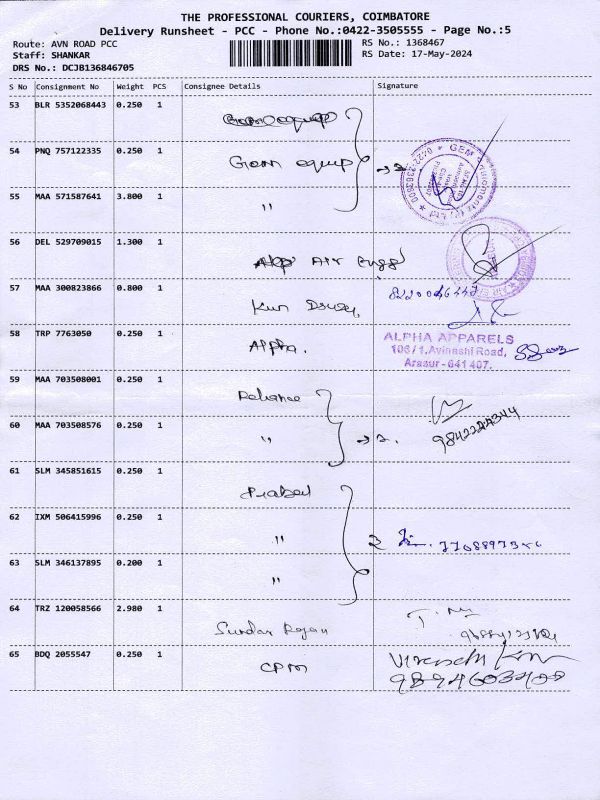 THE PROFESSIONAL COURIERS, COIMBATORE
Delivery Runsheet - PCC - Phone No.:0422-3505555 - Page No.:5
Route: AVN ROAD PCC
RS No.: 1368467
Staff: SHANKAR
RS Date: 17-May-2024
DRS No.: DCJB136846705
S No Consignment No Weight PCS Consignee Details Signature
53 BLR 5352068443 0.250 1
54 PNQ 757122335 0.250 1 Gem equip
55 MAA 571587641 3.800 1 "
56 DEL 529709015 1.300 1 Air
57 MAA 300823866 0.800 1
58 TRP 7763050 0.250 1 Alpha.
ALPHA APPARELS
106/1,Avinashi Road,
Arasur-641 407.
59 MAA 703508001 0.250 1 Reliance
60 MAA 703508576 0.250 1 " 2. 9842244344
61 SLM 345851615 0.250 1
62 IXM 506415996 0.250 1 " 2
63 SLM 346137895 0.200 1 "
64 TRZ 120058566 2.980 1 Sundar Rajan
65 BDQ 2055547 0.250 1 CPM